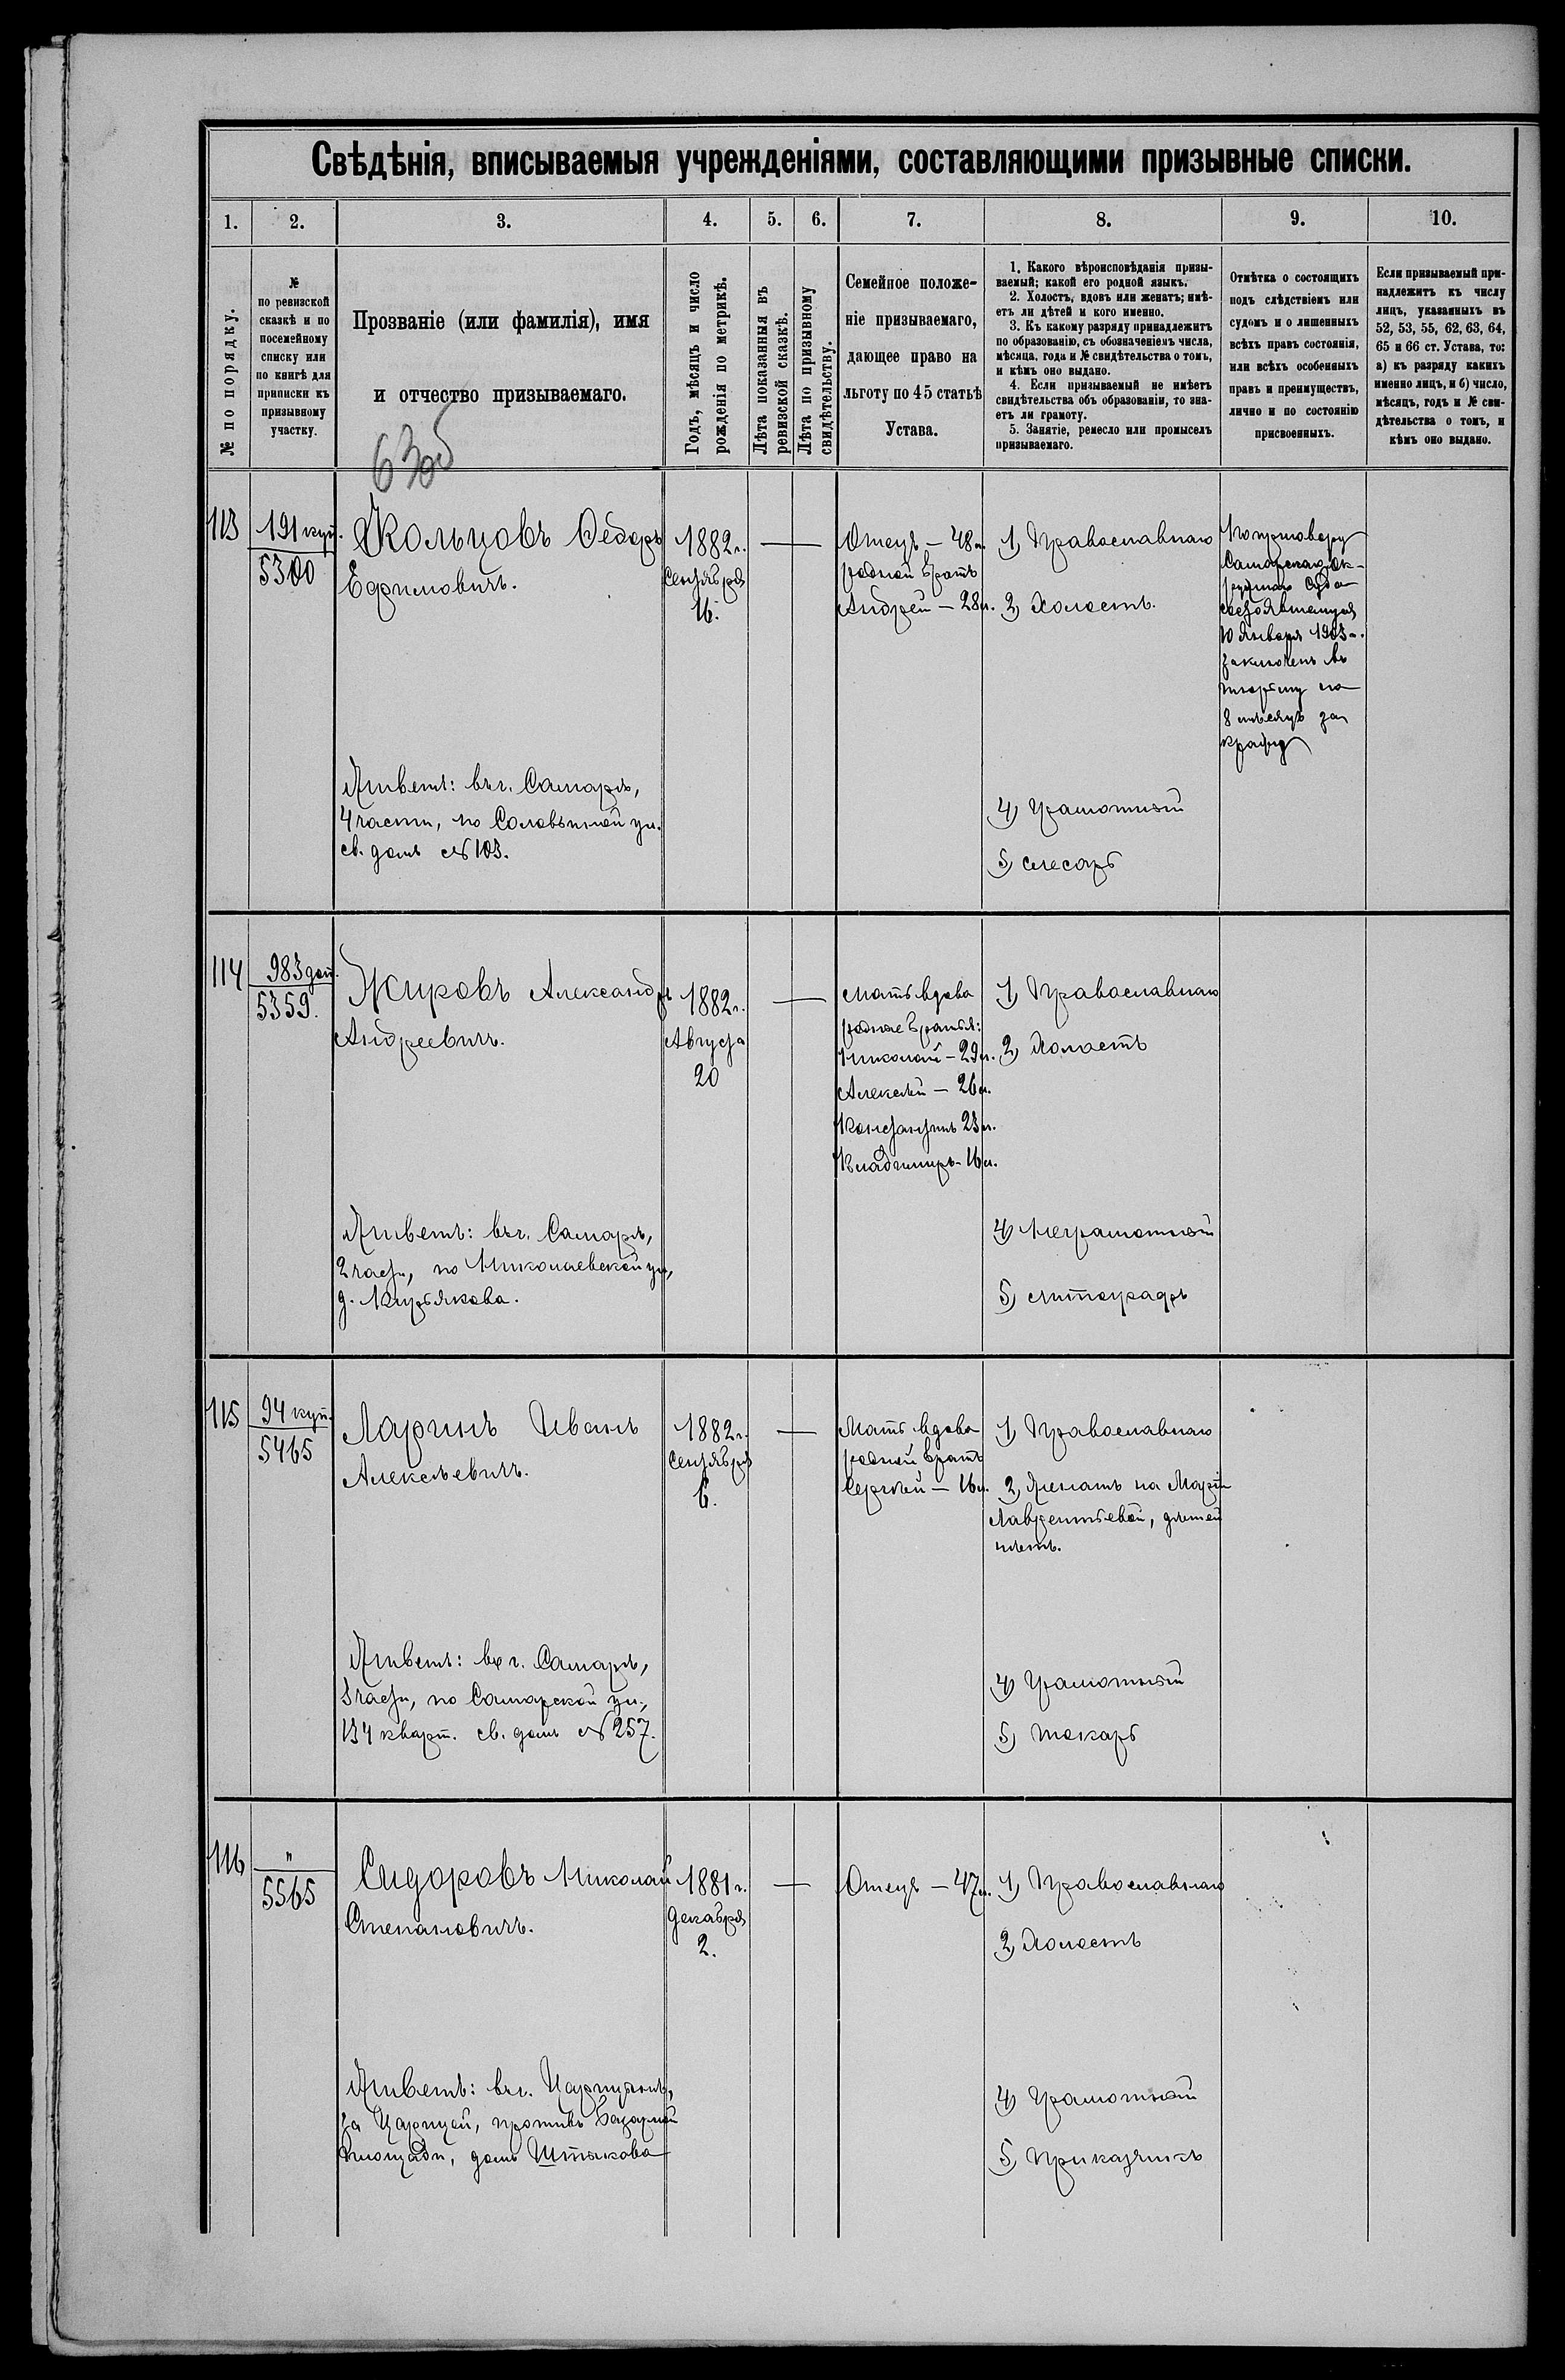 Свѣдѣнія, вписываемыя учрежденіями, составляющими призывные списки.
1. 2. 3. 4. 5. 6. 7. 8. 9. 10.
№ по порядку.
№
по ревизской
сказкѣ и по
посемейному
списку или
по книгѣ для
приписки къ
призывному
участку.
Прозваніе (или фамилія), имя
и отчество призываемаго.
Годъ, мѣсяцъ и число
рожденія по метрикѣ.
Лѣта показанныя въ
ревизской сказкѣ.
Лѣта по призывному
свидѣтельству.
Семейное положе-
ніе призываемаго,
дающее право на
льготу по 45 статьѣ
Устава.
1. Какого вѣроисповѣданія призы-
ваемый; какой его родной языкъ.
2. Холостъ, вдовъ или женатъ; имѣ-
етъ ли дѣтей и кого именно.
3. Къ какому разряду принадлежитъ
по образованію, съ обозначеніемъ числа,
мѣсяца, года и № свидѣтельства о томъ,
и кѣмъ оно выдано.
4. Если призываемый не имѣетъ
свидѣтельства объ образованіи, то зна-
етъ ли грамоту.
5. Занятіе, ремесло или промыселъ
призываемаго.
Отмѣтка о состоящихъ
подъ слѣдствіемъ или
судомъ и о лишенныхъ
всѣхъ правъ состоянія,
или всѣхъ особенныхъ
правъ и преимуществъ,
лично и по состоянію
присвоенныхъ.
Если призываемый при-
надлежитъ къ числу
лицъ, указанныхъ въ
52, 53, 55, 62, 63, 64,
65 и 66 ст. Устава, то:
а) къ разряду какихъ
именно лицъ, и б) число,
мѣсяцъ, годъ и № сви-
дѣтельства о томъ, и
кѣмъ оно выдано.
113
191 куп.
5300
Кольцовъ Ѳедоръ
Ефимовичъ.
Живетъ: въ г. Самарѣ,
4 части, по Соловьиной ул.
св. домъ № 103.
1882 г.
Сентября
16.
Отецъ — 48 л.
родной братъ
Андрей — 28 л.
1) Православнаго
2) Холостъ.
4) Грамотный
5) слесарь
По приговору
Самарскаго Ок-
ружнаго Суда
состоявшемуся
10 Января 1903 г.
заключенъ въ
тюрьму на
8 мѣсяцъ за
кражу
114
983 доп.
5359.
Жировъ Александръ
Андреевичъ.
Живетъ: въ г. Самарѣ,
2 части, по Николаевской ул,
д. Кирьякова.
1882 г.
Августа
20
Мать вдова
родные братья:
Николай — 29 л.
Алексѣй — 26 л.
Константинъ 23 л.
Владимиръ — 16 л.
1) Православнаго
2) Холостъ
4) Неграмотный
5) литографъ
115
94 куп.
5465
Ларинъ Иванъ
Алексѣевичъ.
Живетъ: въ г. Самарѣ,
3 части, по Самарской ул.,
134 кварт. св. домъ № 257.
1882 г.
Сентября
6.
Мать вдова
родной братъ
Сергѣй — 16 л.
1) Православнаго
2) Женатъ на Маріи
Лаврентьевой, дѣтей
нѣтъ.
4) Грамотный
5) токарь
116
"
5565
Сидоровъ Николай
Степановичъ.
Живетъ: въ г. Царицынѣ,
за Царицей, противъ Базарной
площади, домъ Штыкова
1881 г.
Декабря
2.
Отецъ — 47 л.
1) Православнаго
2) Холостъ
4) Грамотный
5) Приказчикъ